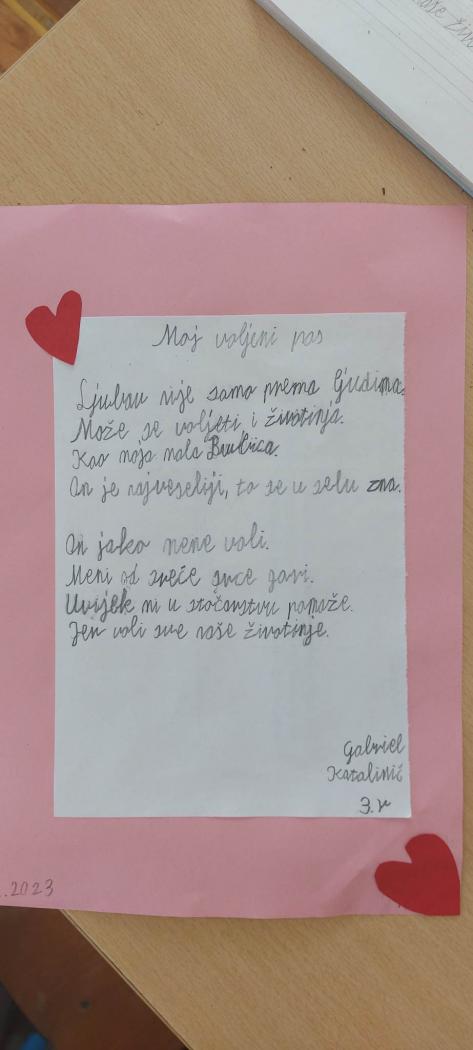 Moj voljeni pas
Ljubav nije samo prema ljudima.
Može se voljeti i životinja.
Kao moja mala Bubica.
On je najveseliji, to se u selu zna.
On jako mene voli.
Meni od sreće srce gori.
Uvijek mi u stočarstvu pomaže.
Jer voli sve naše životinje.
Gabriel
Katalinić
3.r
.2023